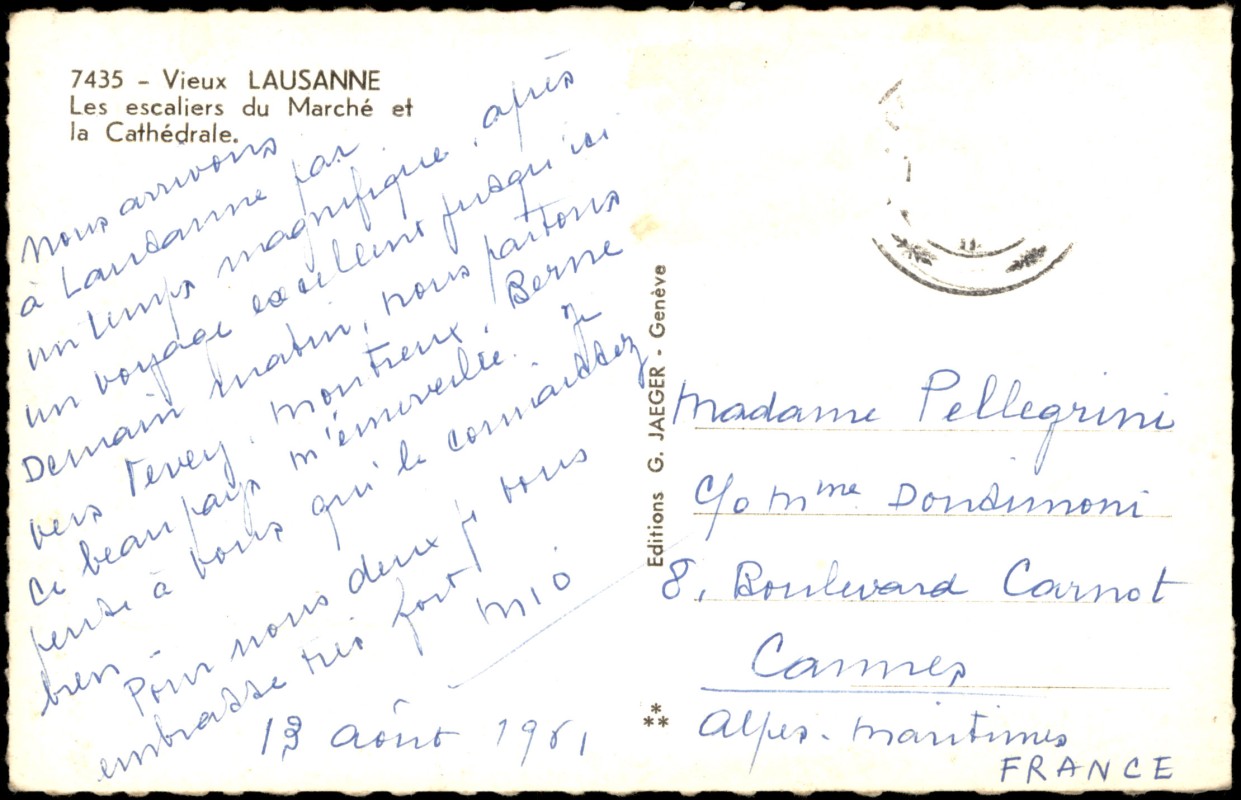 7435 - Vieux LAUSANNE
Les escaliers du Marché et
la Cathédrale.
Nous arrivons
à Lausanne par
un temps magnifique, après
un voyage excellent jusqu'ici
Demain matin, nous partons
vers Vevey, Montreux, Berne
Ce beau pays m'émerveille. Je
pense à vous qui le connaissez
bien -
Pour nous deux je vous
embrasse très fort
Mió
13 août 1961
Editions G. JAEGER - Genève
Madame Pellegrini
C/o Mme Dondimoni
8, Boulevard Carnot
Cannes
Alpes-Maritimes
FRANCE